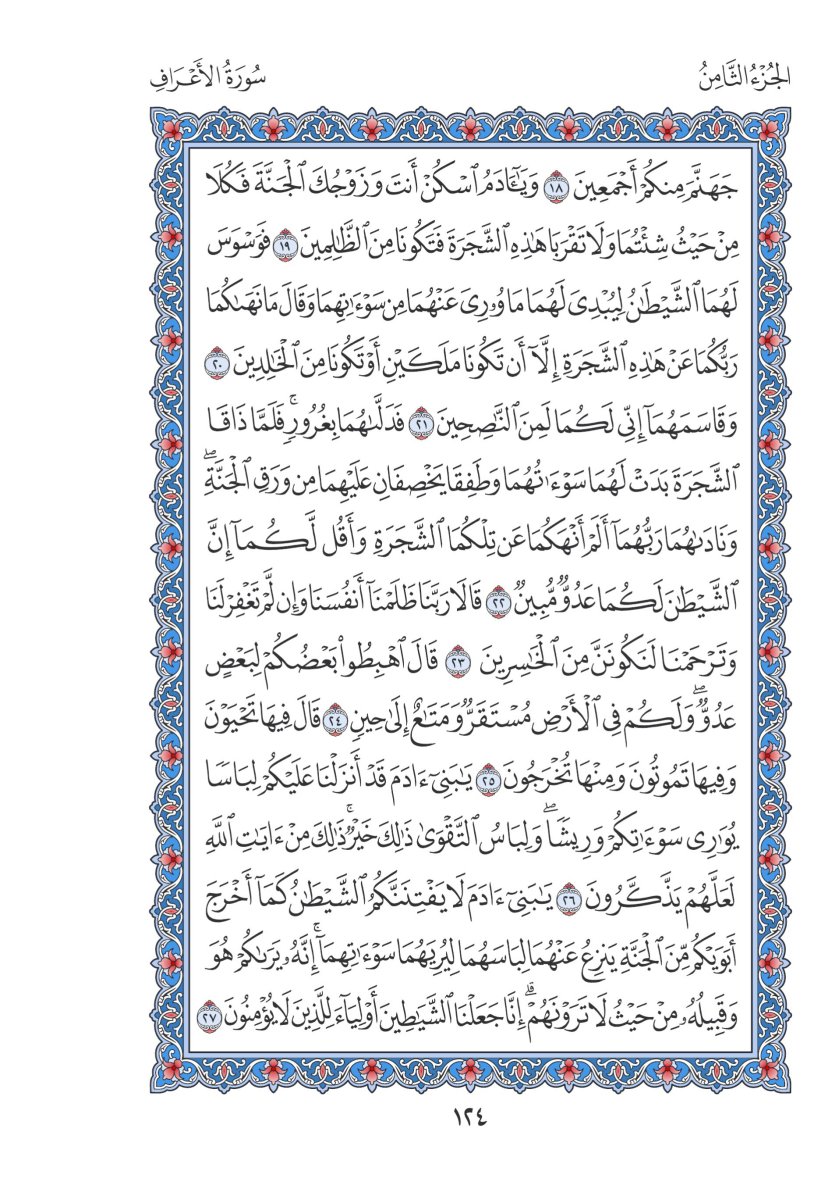 الجُزْءُ الثَّامِنُ
سُورَةُ الأَعْرَافِ
جَهَنَّمَ مِنكُمْ أَجْمَعِينَ ١٨ وَيَٰٓـَٔادَمُ ٱسْكُنْ أَنتَ وَزَوْجُكَ ٱلْجَنَّةَ فَكُلَا
مِنْ حَيْثُ شِئْتُمَا وَلَا تَقْرَبَا هَٰذِهِ ٱلشَّجَرَةَ فَتَكُونَا مِنَ ٱلظَّٰلِمِينَ ١٩ فَوَسْوَسَ
لَهُمَا ٱلشَّيْطَٰنُ لِيُبْدِىَ لَهُمَا مَا وُۥرِىَ عَنْهُمَا مِن سَوْءَٰتِهِمَا وَقَالَ مَا نَهَىٰكُمَا
رَبُّكُمَا عَنْ هَٰذِهِ ٱلشَّجَرَةِ إِلَّآ أَن تَكُونَا مَلَكَيْنِ أَوْ تَكُونَا مِنَ ٱلْخَٰلِدِينَ ٢٠
وَقَاسَمَهُمَآ إِنِّى لَكُمَا لَمِنَ ٱلنَّٰصِحِينَ ٢١ فَدَلَّىٰهُمَا بِغُرُورٍۚ فَلَمَّا ذَاقَا
ٱلشَّجَرَةَ بَدَتْ لَهُمَا سَوْءَٰتُهُمَا وَطَفِقَا يَخْصِفَانِ عَلَيْهِمَا مِن وَرَقِ ٱلْجَنَّةِۖ
وَنَادَىٰهُمَا رَبُّهُمَآ أَلَمْ أَنْهَكُمَا عَن تِلْكُمَا ٱلشَّجَرَةِ وَأَقُل لَّكُمَآ إِنَّ
ٱلشَّيْطَٰنَ لَكُمَا عَدُوٌّ مُّبِينٌ ٢٢ قَالَا رَبَّنَا ظَلَمْنَآ أَنفُسَنَا وَإِن لَّمْ تَغْفِرْ لَنَا
وَتَرْحَمْنَا لَنَكُونَنَّ مِنَ ٱلْخَٰسِرِينَ ٢٣ قَالَ ٱهْبِطُوا۟ بَعْضُكُمْ لِبَعْضٍ
عَدُوٌّۖ وَلَكُمْ فِى ٱلْأَرْضِ مُسْتَقَرٌّ وَمَتَٰعٌ إِلَىٰ حِينٍ ٢٤ قَالَ فِيهَا تَحْيَوْنَ
وَفِيهَا تَمُوتُونَ وَمِنْهَا تُخْرَجُونَ ٢٥ يَٰبَنِىٓ ءَادَمَ قَدْ أَنزَلْنَا عَلَيْكُمْ لِبَاسًا
يُوَٰرِى سَوْءَٰتِكُمْ وَرِيشًاۖ وَلِبَاسُ ٱلتَّقْوَىٰ ذَٰلِكَ خَيْرٌۚ ذَٰلِكَ مِنْ ءَايَٰتِ ٱللَّهِ
لَعَلَّهُمْ يَذَّكَّرُونَ ٢٦ يَٰبَنِىٓ ءَادَمَ لَا يَفْتِنَنَّكُمُ ٱلشَّيْطَٰنُ كَمَآ أَخْرَجَ
أَبَوَيْكُم مِّنَ ٱلْجَنَّةِ يَنزِعُ عَنْهُمَا لِبَاسَهُمَا لِيُرِيَهُمَا سَوْءَٰتِهِمَآۚ إِنَّهُۥ يَرَىٰكُمْ هُوَ
وَقَبِيلُهُۥ مِنْ حَيْثُ لَا تَرَوْنَهُمْۗ إِنَّا جَعَلْنَا ٱلشَّيَٰطِينَ أَوْلِيَآءَ لِلَّذِينَ لَا يُؤْمِنُونَ ٢٧
١٢٤